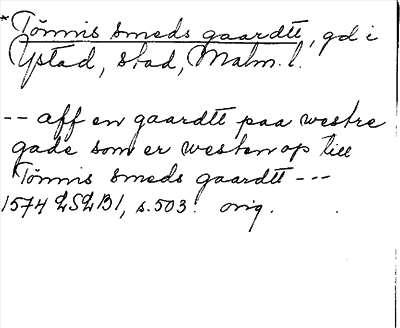 *Tönnis smeds gaardtt, gd i
Ystad, stad, Malm. l.
-- aff en gaardtt paa westre
gade som er westen op till
Tönnis smeds gaardtt ---
1574 LSLB1, s. 503. orig.